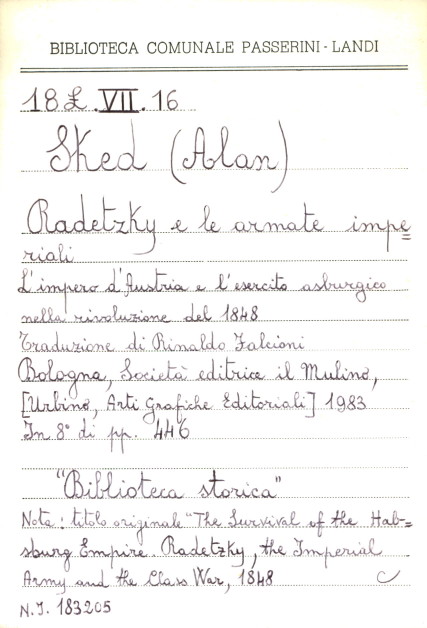 BIBLIOTECA COMUNALE PASSERINI - LANDI
18 £.VII.16
Sked (Alan)
Radetzky e le armate impe=
riali
L'impero d'Austria e l'esercito asburgico
nella rivoluzione del 1848
Traduzione di Rinaldo Falcioni
Bologna, Società editrice il Mulino,
[Urbino, Arti Grafiche Editoriali] 1983
In 8° di pp. 446
"Biblioteca storica"
Nota: titolo originale "The Survival of the Hab=
sburg Empire. Radetzky, the Imperial
Army and the Class War, 1848
C
N.I. 183205